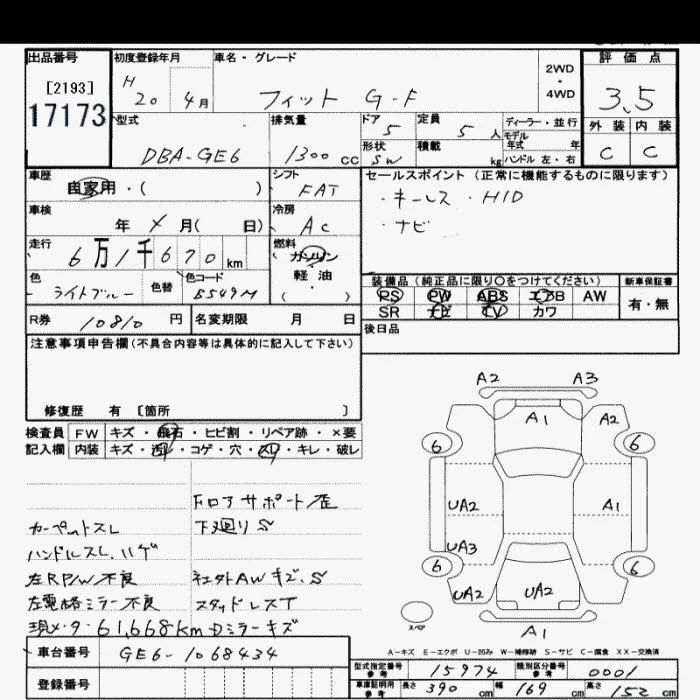 出品番号 初度登録年月 車名・グレード 評価点
[2193] H 20 4月 フィット G-F 2WD・4WD 3.5
17173
型式 DBA-GE6 排気量 1300 cc ドア 5 定員 5 人 ディーラー・並行 外装 内装
形状 SW 積載 kg モデル年式 年 ハンドル 左・右 C C
車歴 自家用・( ) シフト FAT セールスポイント (正常に機能するものに限ります)
・キーレス ・HID
・ナビ
車検 年 月( 日) 冷房 AC
走行 6万1千670 km 燃料 ガソリン
軽・油
( )
色 ライトブルー 色替 色コード B549M
装備品 (純正品に限り〇をつけてください) 新車保証書
PS PW ABS エアB AW 有・無
SR ナビ TV カワ
R券 10810 円 名変期限 月 日 後日品
注意事項申告欄(不具合内容等は具体的に記入して下さい)
修復歴 有 [箇所 ]
検査員 FW キズ・飛石・ヒビ割・リペア跡・×要
記入欄 内装 キズ・汚れ・コゲ・穴・スレ・キレ・破レ
Fロアサポート歪
カーペットスレ 下廻りS
ハンドルスレ、ハゲ
左RP/W不良 社外AWキズ、S
左電格ミラー不良 スタッドレスT
現メーター61,668km Dミラーキズ
A2 A3
A1 A2
6 6
UA2 A1
UA3
6 6
UA2 UA2 A2
スペア
A1
A-キズ E-エクボ U-凹み W-補修跡 S-サビ C-腐食 XX-交換済
車台番号 GE6-1068434
登録番号
型式指定番号 参考 15974 類別区分番号 参考 0001
車庫証明用 参考 長さ 390 cm 幅 169 cm 高さ 152 cm